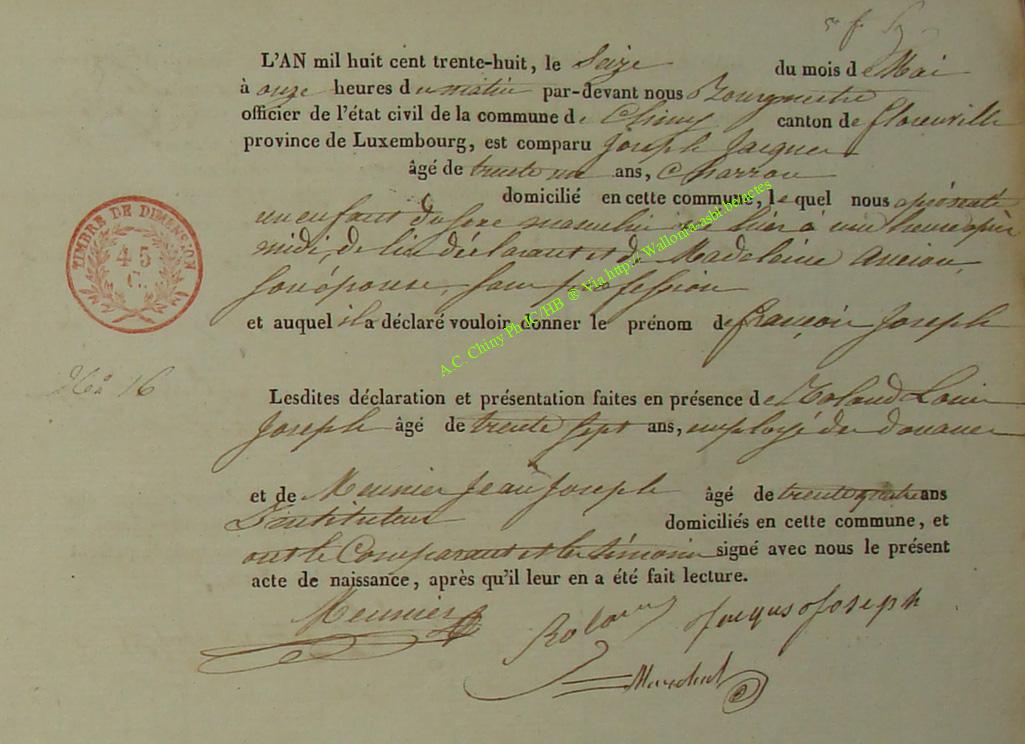 L'AN mil huit cent trente-huit, le Seize du mois de Mai
à onze heures du matin par-devant nous Bourgmestre
officier de l'état civil de la commune de Chiny canton de florenville
province de Luxembourg, est comparu Joseph Jacques
âgé de trente un ans, Charron
domicilié en cette commune, lequel nous a présenté
un enfant du sexe masculin né hier à une heure après
midi, de lui déclarant et de Madelaine Ancion,
son épouse, sans profession
et auquel il a déclaré vouloir donner le prénom de françois Joseph
No 16
Lesdites déclaration et présentation faites en présence de Roland Louis
Joseph âgé de trente sept ans, employé des douanes
et de Meunier Jean Joseph âgé de trente quatre ans
Instituteur domiciliés en cette commune, et
ont le Comparant et les témoins signé avec nous le présent
acte de naissance, après qu'il leur en a été fait lecture.
Meunier
Jacques Joseph
TIMBRE DE DIMENSION
45
C.
A.C. Chiny Ph JC/HB ® Via http://Wallonia-asbl.be/actes